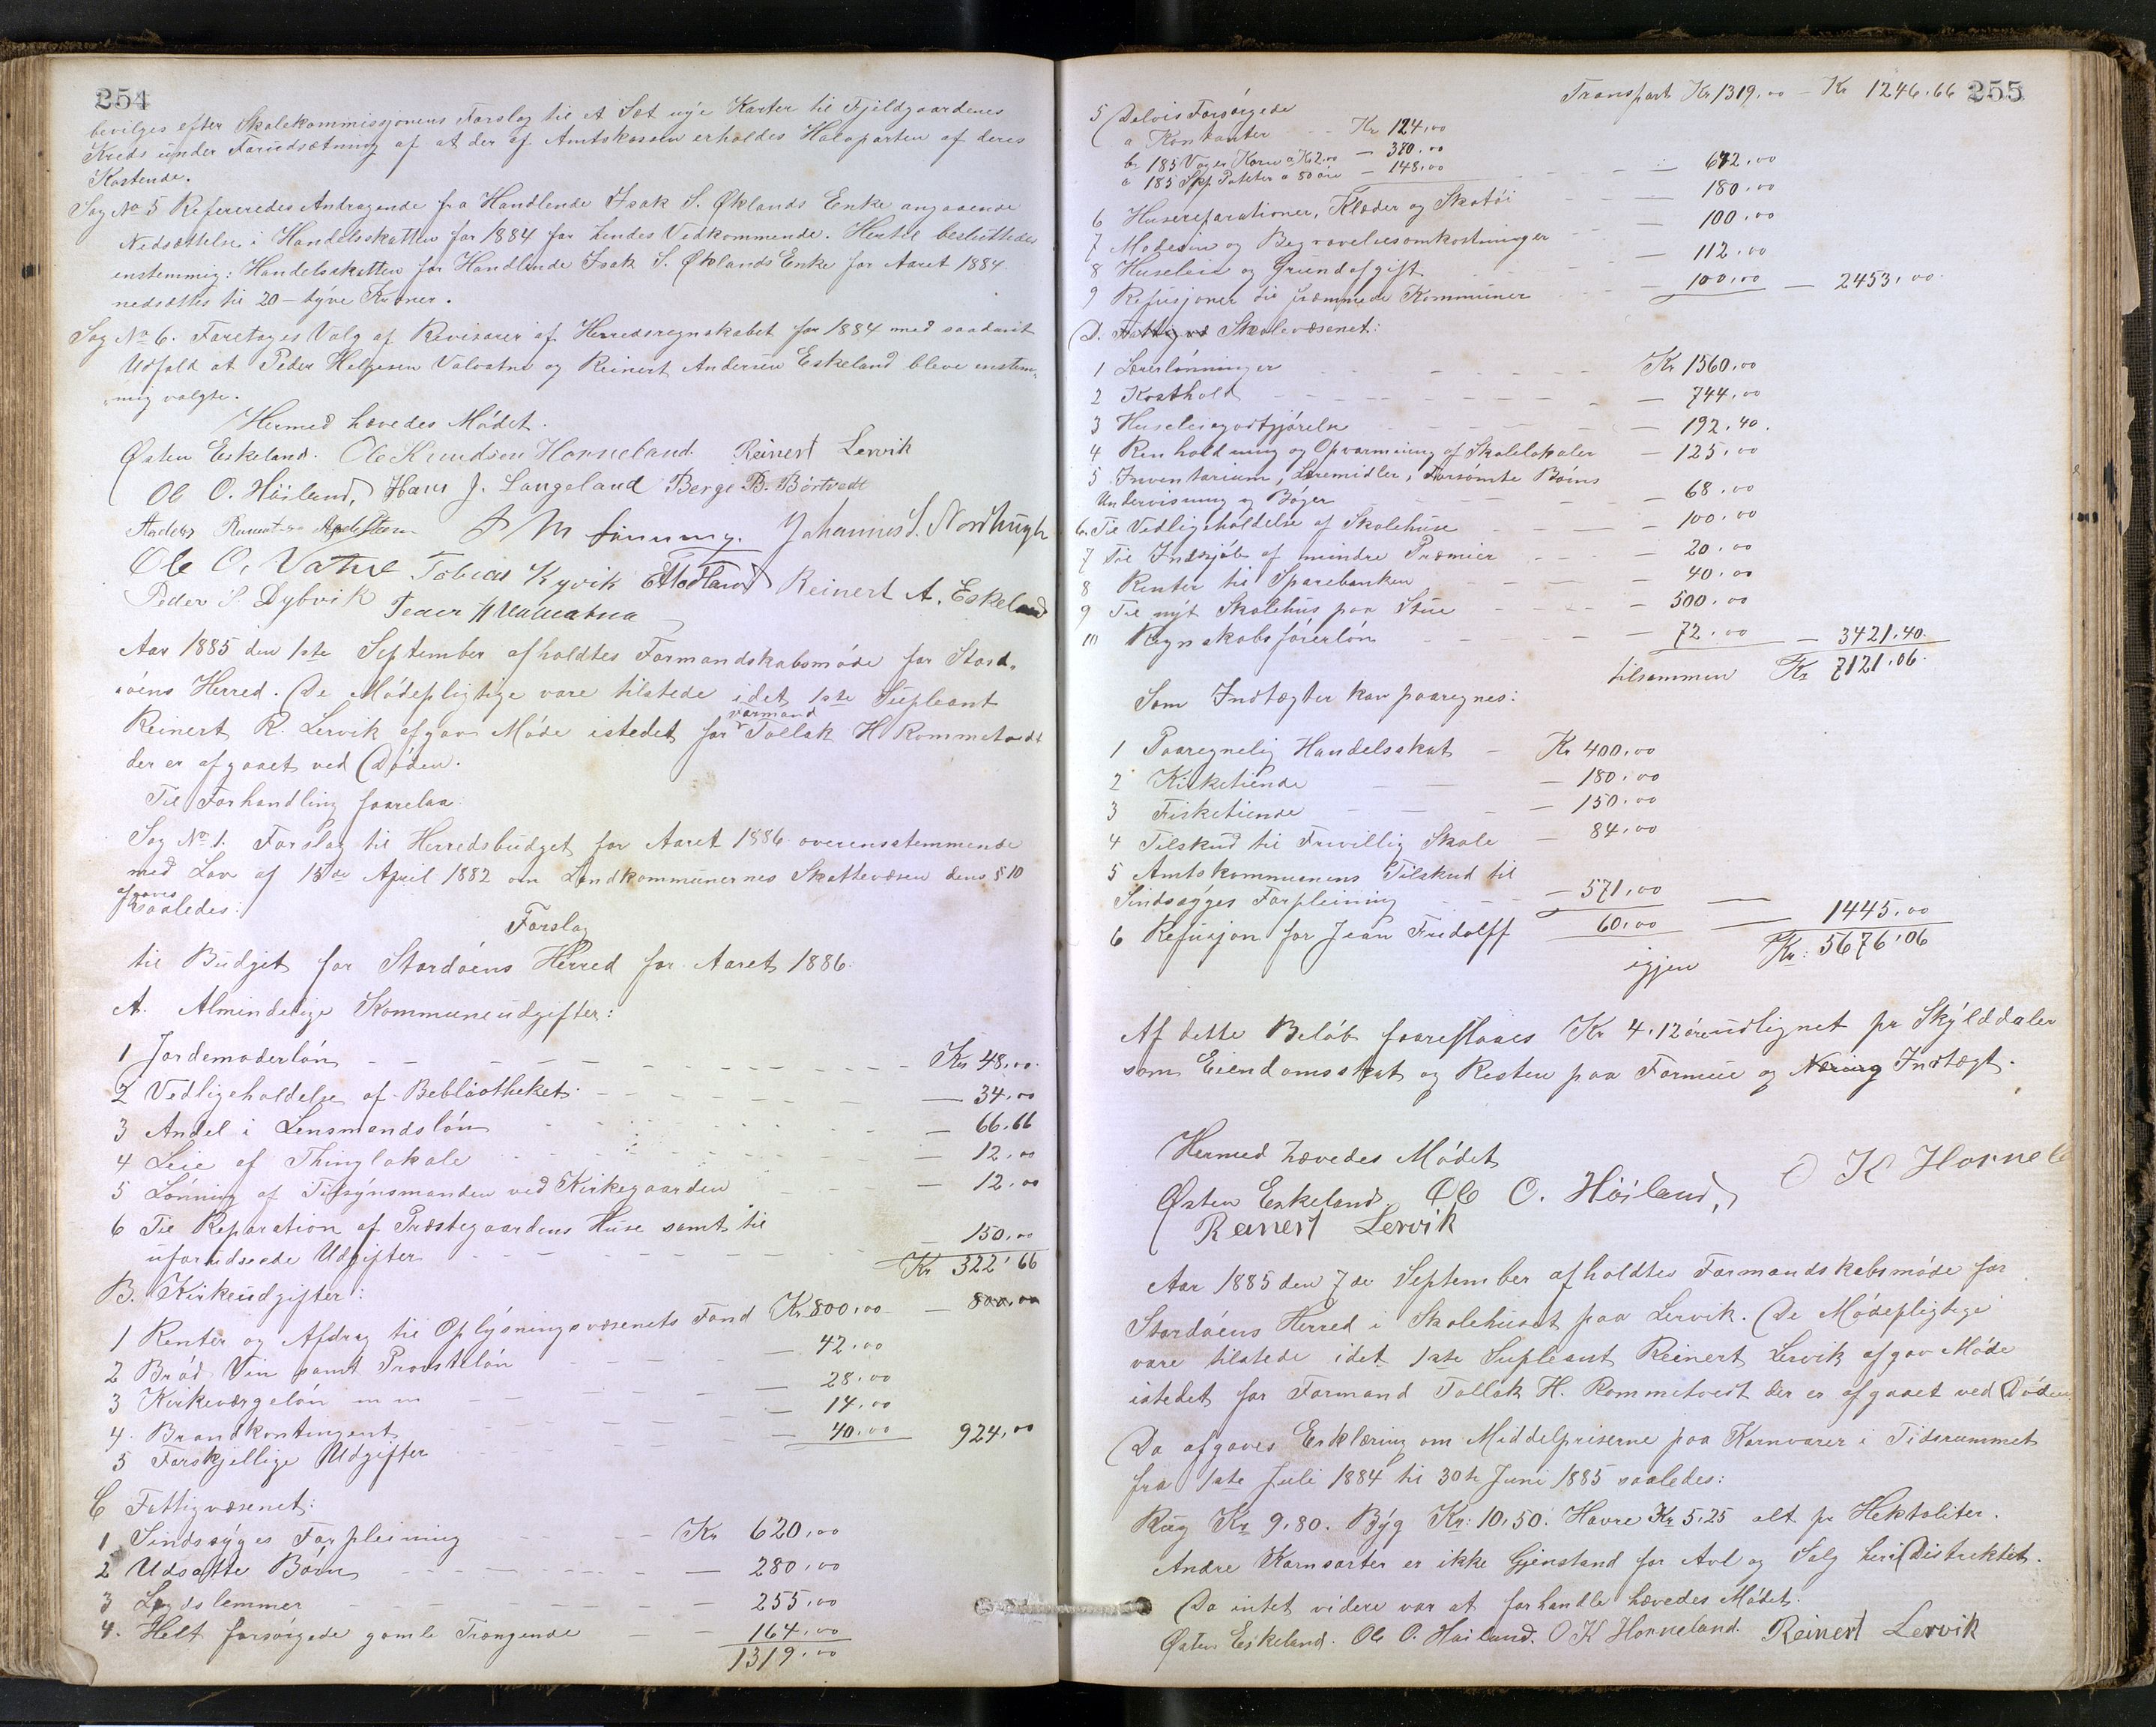 254
bevilges efter Skolekommissjonens Forslag til et Sæt nye Karter til Fjeldgaardenes
Kreds under Forudsætning af at der af Amtskassen erholdes Halvparten af deres
Kostende.
Sag No 5 Refereredes Andragende fra Handlende Isak S. Øklands Enke angaaende
Nedsættelse i Handelsskatten for 1884 for hendes Vedkommende. Hertil besluttedes
enstemmig: Handelsskatten for Handlende Isak S. Øklands Enke for Aaret 1884
nedsættes til 20 - tyve Kroner.
Sag No 6. Foretoges Valg af Revisorer af Herredsregnskabet for 1884 med saadant
Udfald at Peder Helgesen Valvatne og Reinert Andersen Eskeland bleve enstem-
mig valgte.
Hermed hævedes Mødet.
Østen Eskeland. Ole Knudsen Horneland. Reinert Lervik
Ole O. Høiland, Hans J. Langeland Berge B. Børtvedt
Johannes S. Nordhugh
Ole O. Vatne Tobias Kyvik Reinert A. Eskeland
Peder S. Dybvik Peder H Valvatna
Aar 1885 den 1ste September afholdtes Formandskabsmøde for Stord-
øens Herred. De Mødepligtige vare tilstede idet 1ste Supleant
Reinert R. Lervik afgav Møde istedet for Formand Tollak H Rommetvedt
der er afgaaet ved Døden.
Til Forhandling forelaa:
Sag No 1. Forslag til Herredsbudget for Aaret 1886 overensstemmende
med Lov af 15de April 1882 om Landkommunernes Skattevæsen dens § 10
afgaves saaledes:
Forslag
til Budget for Stordøens Herred for Aaret 1886.
A. Almindelige Kommuneudgifter:
1 Jordemoderløn - - - - Kr 48,00
2 Vedligeholdelse af Bebliotheket - - - - 34,00
3 Andel i Lensmandsløn - - - - 66.66
4 Leie af Thinglokale - - - - 12,00
5 Lønning af Tilsynsmanden ved Kirkegaarden - - 12,00
6 Til Reparation af Præstegaardens Huse samt til
uforudseede Udgifter - - - - 150,00
Kr 322,66
B. Kirkeudgifter:
1 Renter og Afdrag til Oplysningsvæsenets Fond Kr 800,00 - 800,00
2 Brød Vin samt Provsteløn - - - 42,00
3 Kirkeværgeløn m m - - - 28,00
4. Brandkontingent - - - 14,00
5 Forskjellige Udgifter - - - 40,00 924,00
C Fattigvæsenet:
1 Sindssyges Forpleining - - - Kr 620,00
2 Udsatte Børn - - - - 280,00
3 Lægdslemmer - - - - 255,00
4. Helt forsørgede gamle Trængende - - 164,00
1319,00
255
Transport Kr 1319,00 - Kr 1246.66
5 Delvis Forsørgede
a Kontanter - - Kr 124,00
b 185 Voger Korn a Kr 2.00 - 370.00
c 185 Skp Poteter a 80 øre - 148,00 - - - 642,00
6 Husereparationer, Klæder og Skotøi - - - 180,00
7 Medesin og Begravelsesomkostninger - - - 100,00
8 Huseleie og Grundafgift - - - 112,00
9 Refusjoner til fremmede Kommuner - - - 100,00 - 2453,00
D. Fattigvæ Skolevæsenet:
1 Lærerlønninger - - - Kr 1560,00
2 Kosthold - - - - 744,00
3 Huseleiegodtgjørelse - - - 192,40.
4 Renholdning og Opvarmning af Skolelokaler - 125,00
5 Inventarium, Læremidler, Forsømte Børns
Undervisning og Bøger - - - 68,00
6. Til Vedligeholdelse af Skolehuse - - - 100,00
7 Til Indkjøb af mindre Præmier - - - 20,00
8 Renter til Sparebanken - - - 40,00
9 Til nyt Skolehus paa Stue - - - 500,00
10 Regnskabsførerløn - - - 72,00 - 3421,40.
tilsammen Kr 7121,06.
Som Indtægter kan paaregnes:
1 Paaregnelig Handelsskat - Kr 400,00
2 Kirketiende - - - 180,00
3 Fisketiende - - - 150,00
4 Tilskud til Frivillig Skole - 84,00
5 Amtskommunens Tilskud til
Sindssyges Forpleining - - - 571,00
6 Refusjon for Jean Fudolff 60,00 - 1445,00
igjen Kr: 5676,06
Af dette Beløb foreslaaes Kr 4,12 øre udlignet pr Skylddaler
som Eiendomsskat og Resten paa Formue og Næring Indtægt.
Hermed hævedes Mødet
Østen Eskeland, Ole O. Høiland, O K Hornel
Reinert Lervik
Aar 1885 den 7de September afholdtes Formandskabsmøde for
Stordøens Herred i Skolehuset paa Lervik. De Mødepligtige
vare tilstede idet 1ste Supleant Reinert Lervik afgav Møde
istedet for Formand Tollak H. Rommetvedt der er afgaaet ved Døden
Da afgaves Erklæring om Middelpriserne paa Kornvarer i Tidsrummet
fra 1ste Juli 1884 til 30te Juni 1885 saaledes:
Rug Kr 9,80. Byg Kr: 10,50. Havre Kr 5,25 alt pr Hektoliter.
Andre Kornsorter er ikke Gjenstand for Avl og Salg her i Distriktet.
Da intet videre var at forhandle hævedes Mødet.
Østen Eskeland. Ole O. Høiland. O K Horneland. Reinert Lervik